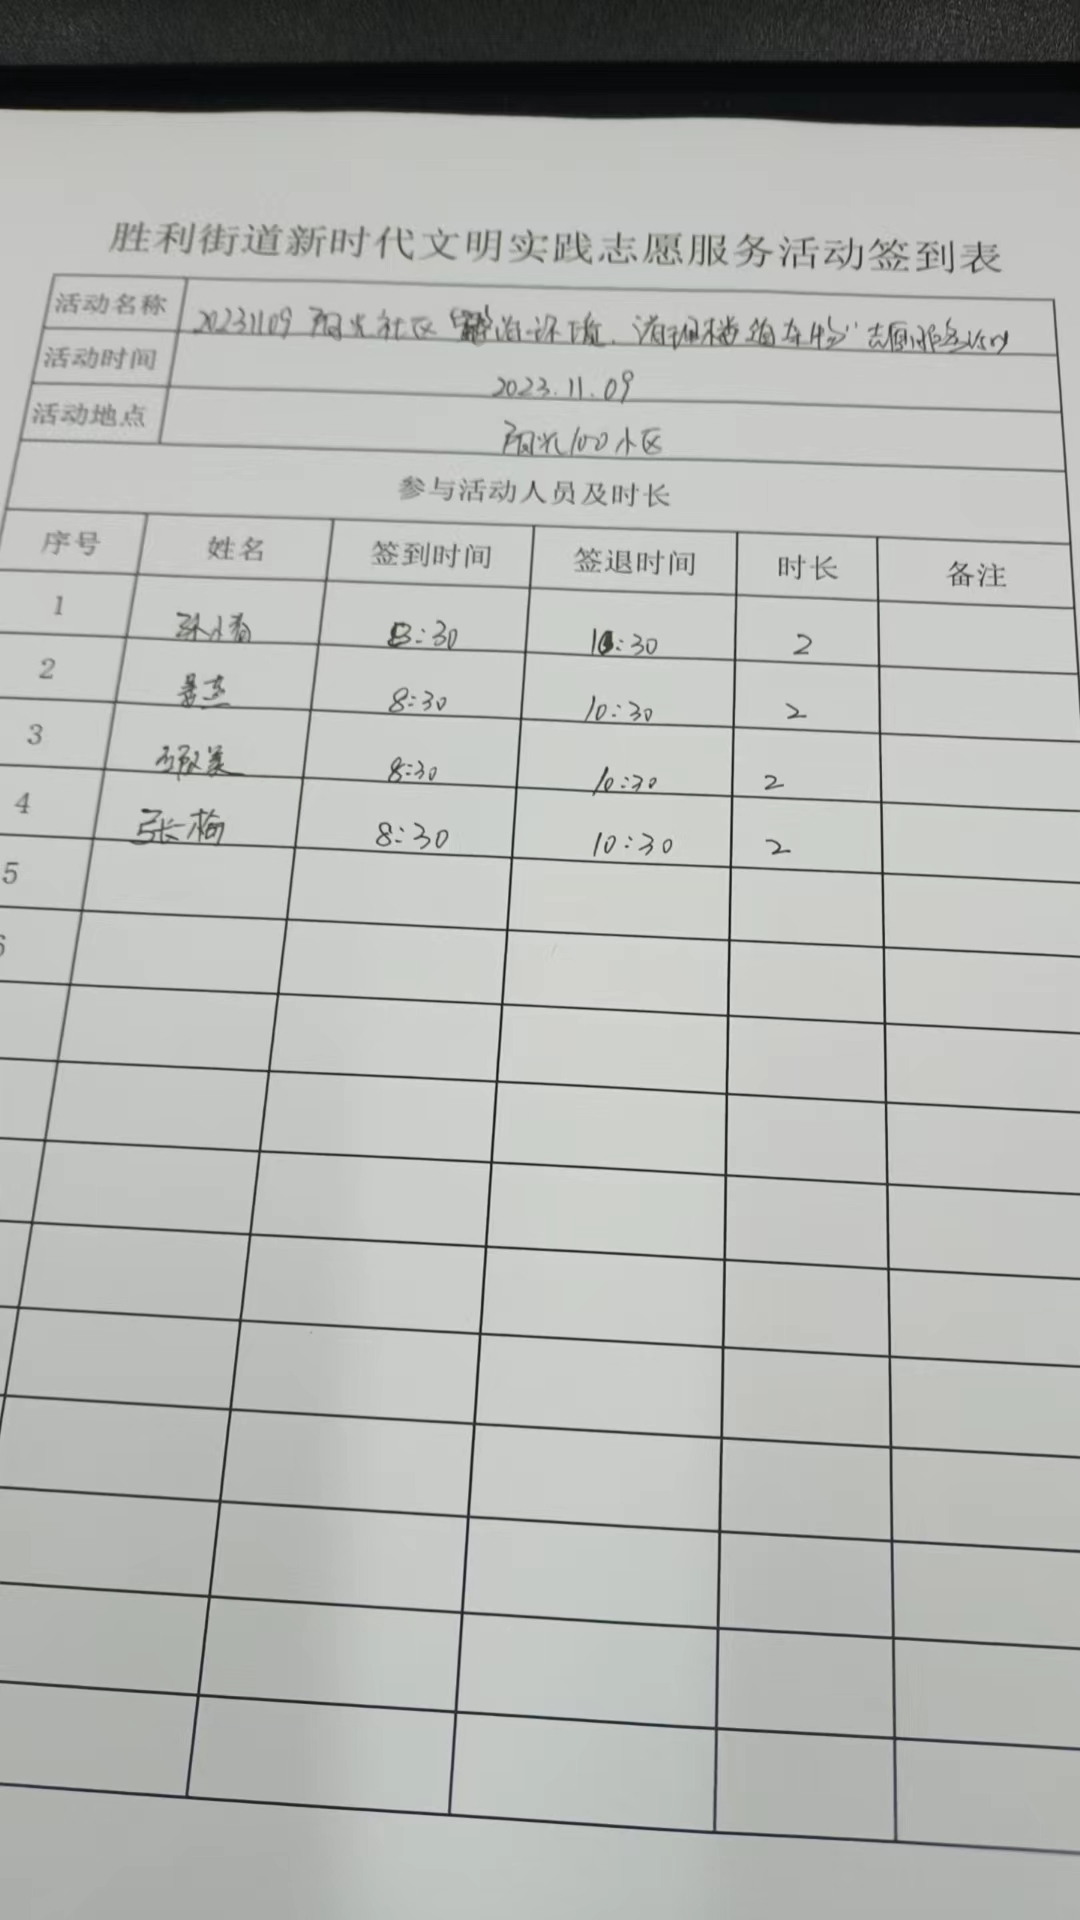 胜利街道新时代文明实践志愿服务活动签到表
活动名称 20231109 阳光社区 环境、清理楼道杂物"志愿服务活动
活动时间 2023.11.09
活动地点 阳光100小区
参与活动人员及时长
序号 姓名 签到时间 签退时间 时长 备注
1 8:30 10:30 2
2 8:30 10:30 2
3 8:30 10:30 2
4 张梅 8:30 10:30 2
5
6